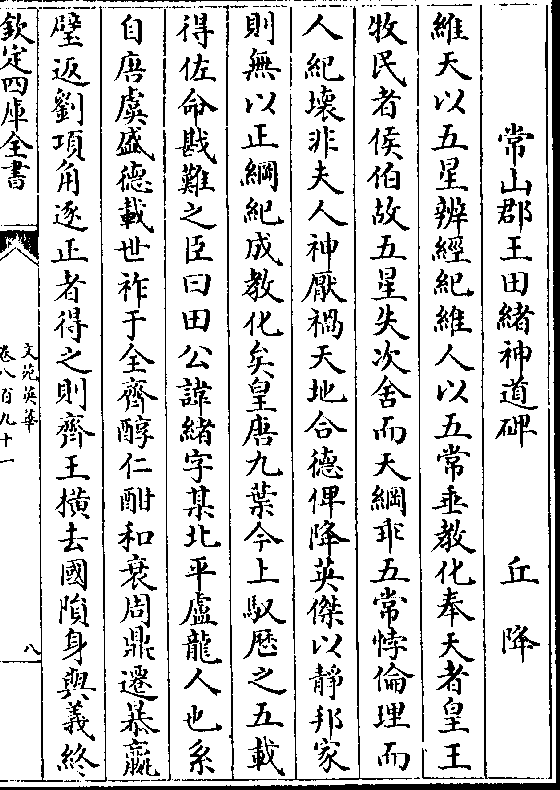 常山郡王田緒神道碑 丘降
維天以五星辨經紀維人以五常垂教化奉天者皇王
牧民者侯伯故五星失次舍而天綱乖五常悖倫理而
人紀壞非夫人神厭禍天地合德俾降英傑以靜邦家
則無以正綱紀成教化矣皇唐九葉今上馭歴之五載
得佐命戡難之臣曰田公諱緒字某北平盧龍人也系
自唐虞盛德載世祚于全齊醇仁酣和衰周鼎遷暴嬴
璧返劉項角逐正者得之則齊王橫去國隕身與義終
欽定四庫全書
文苑英華
卷八百九十一
八